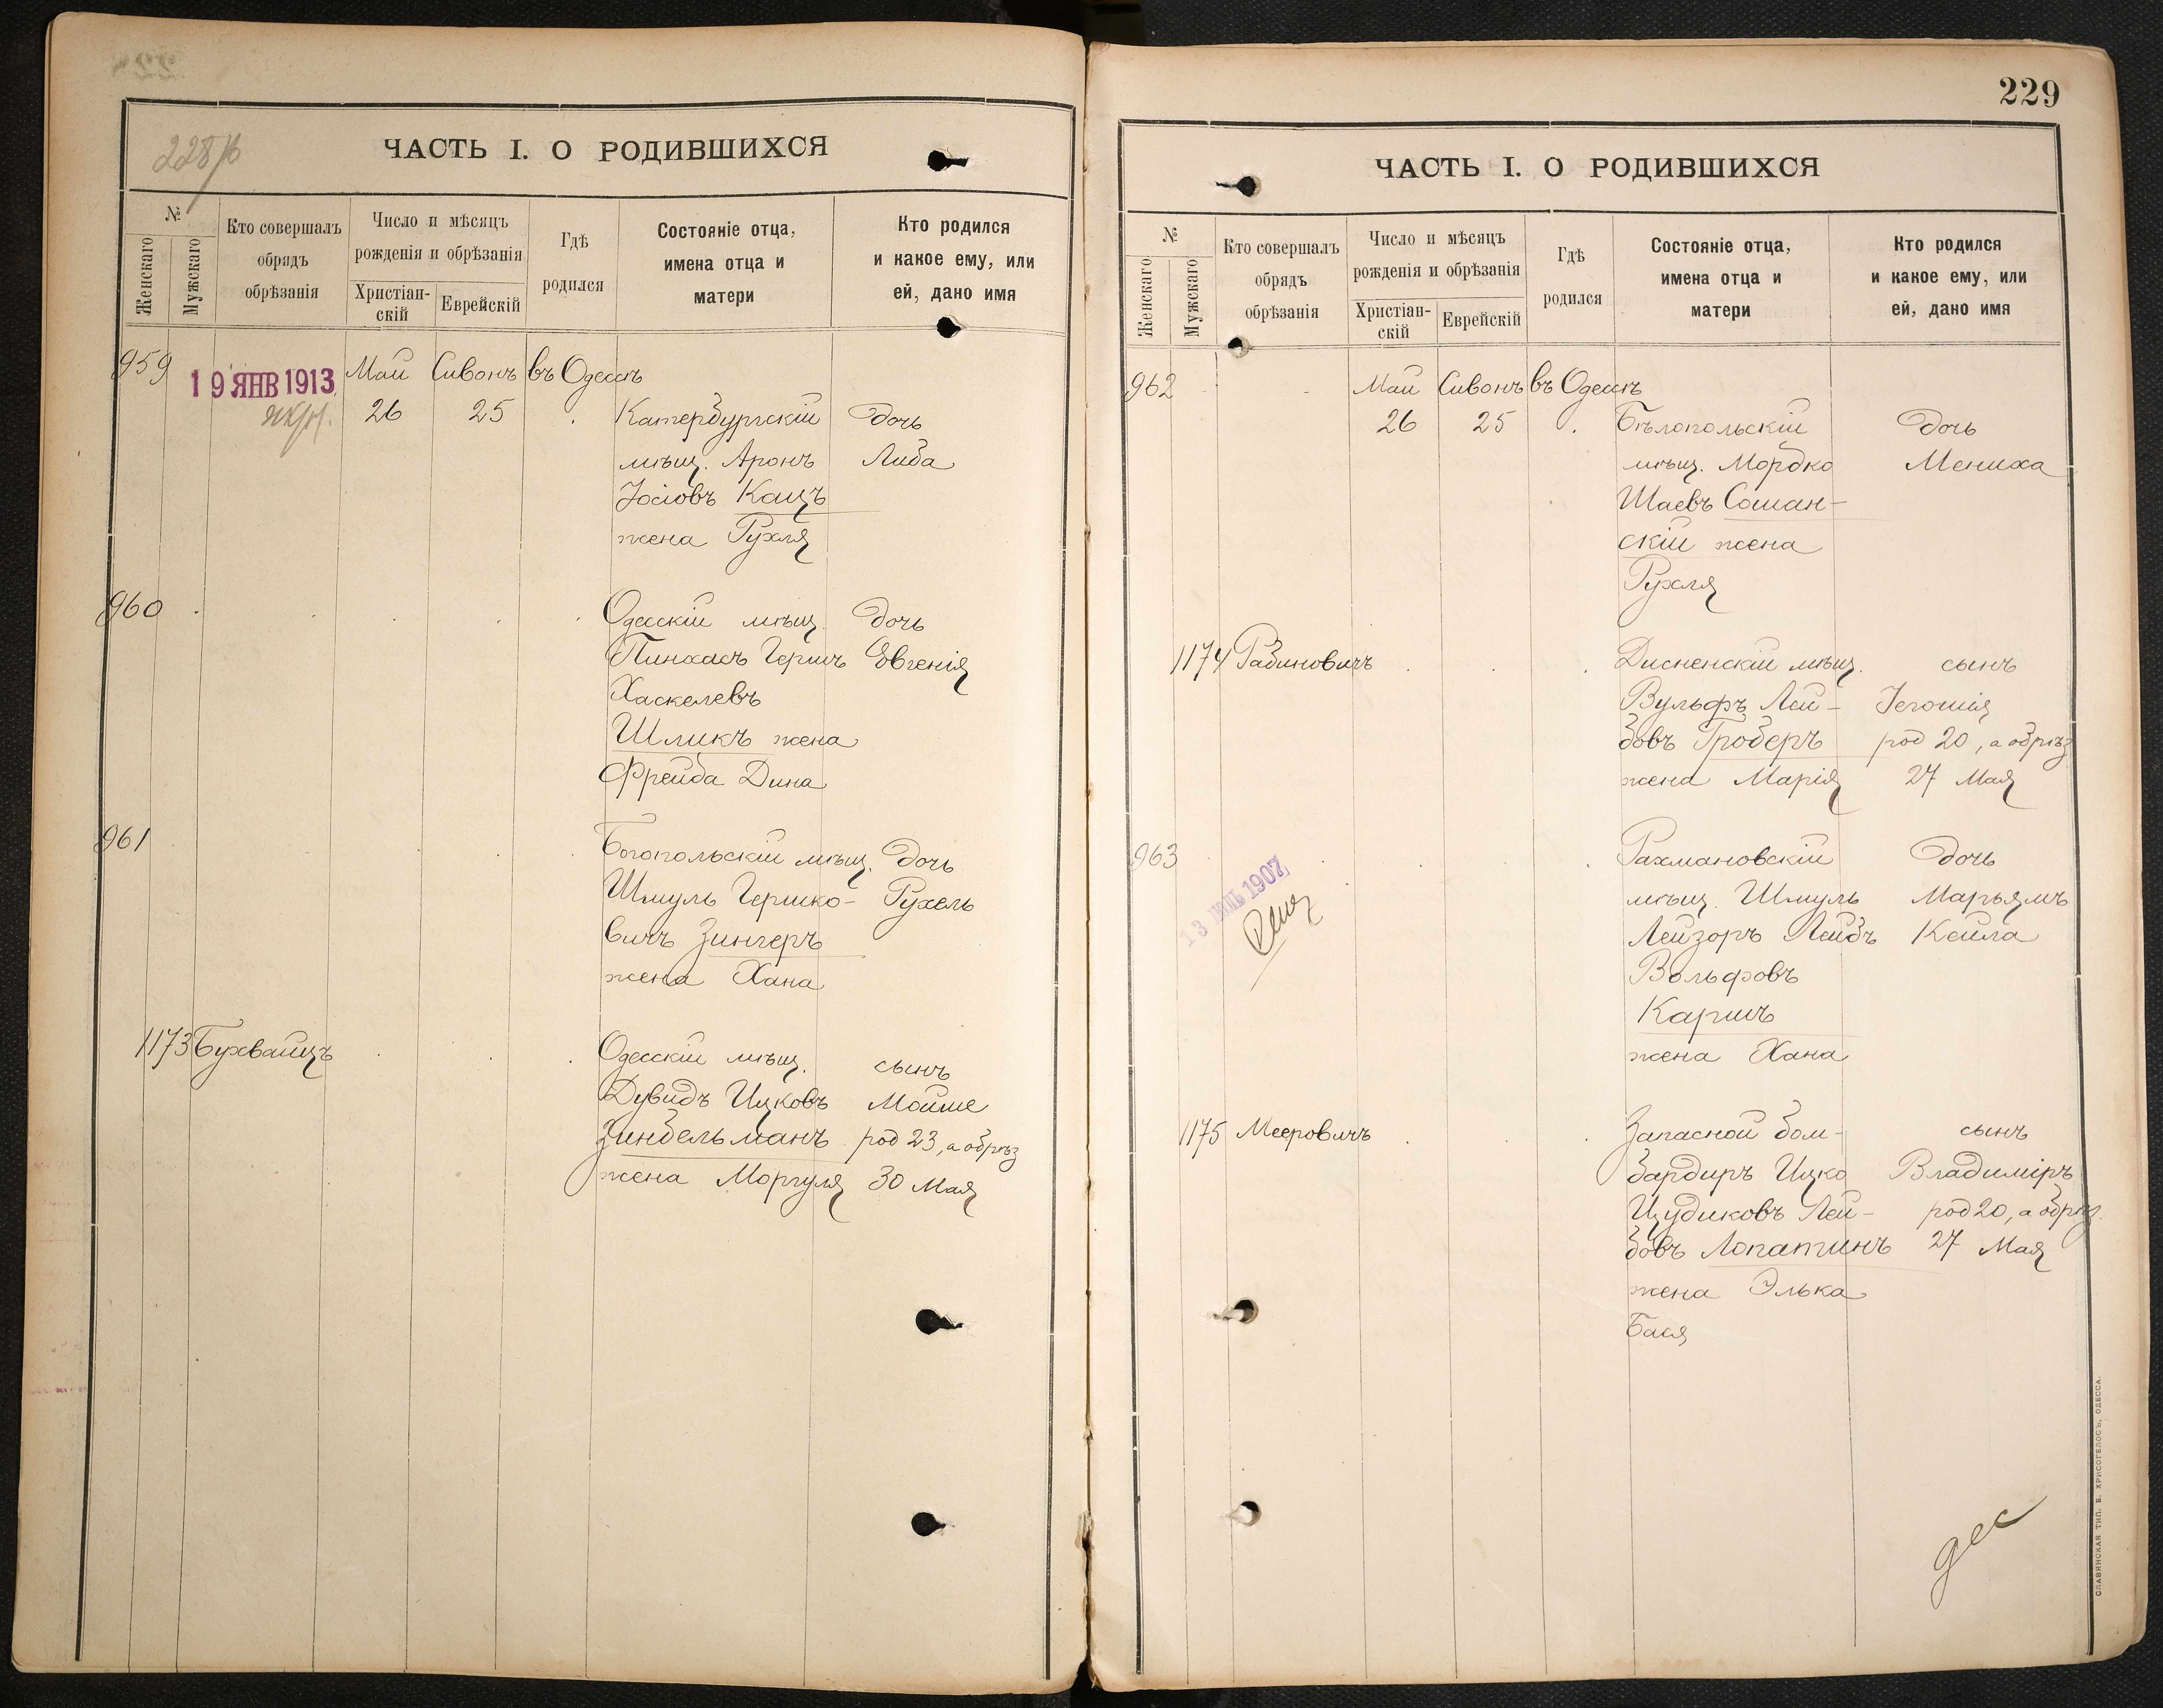 228/б
ЧАСТЬ I. О РОДИВШИХСЯ
№
Женскаго
Мужскаго
Кто совершалъ
обрядъ
обрѣзанія
Число и мѣсяцъ
рожденія и обрѣзанія
Христіан-
скій
Еврейскій
Гдѣ
родился
Состояніе отца,
имена отца и
матери
Кто родился
и какое ему, или
ей, дано имя
959 19 ЯНВ 1913 Май Сивонъ въ Одессѣ
26 25 Катербургскій дочь
мѣщ. Аронъ Либа
Іосіовъ Кацъ
жена Рухля
960 Одесскій мѣщ. дочь
Пинхасъ Гершъ Евгенія
Хаскелевъ
Шликъ жена
Фрейда Дина
961 Богопольскій мѣщ. дочь
Шмуль Гершко- Рухель
вичъ Зингеръ
жена Хана
1173 Бухвайцъ Одесскій мѣщ. сынъ
Дувидъ Ицковъ Мойше
Зиндельманъ род 23, а обрѣз
жена Моргуля 30 Мая
229
ЧАСТЬ I. О РОДИВШИХСЯ
№
Женскаго
Мужскаго
Кто совершалъ
обрядъ
обрѣзанія
Число и мѣсяцъ
рожденія и обрѣзанія
Христіан-
скій
Еврейскій
Гдѣ
родился
Состояніе отца,
имена отца и
матери
Кто родился
и какое ему, или
ей, дано имя
962 Май Сивонъ въ Одессѣ
26 25 Бѣлопольскій дочь
мѣщ. Мордко Мениха
Шаевъ Сошан-
скій жена
Рухля
1174 Рабиновичъ Дисненскій мѣщ. сынъ
Вульфъ Лей- Іегошія
бовъ Гроберъ род 20, а обрѣз
жена Марія 27 Мая
963 Рахмановскій дочь
13 1907 мѣщ. Шмуль Марьямъ
Лейзоръ Лейбъ Кейла
Вольфовъ
Каршъ
жена Хана
1175 Мееровичъ Запасной бом- сынъ
бардиръ Ицко Владиміръ
Цудиковъ Лей- род 20, а обрѣз.
бовъ Лопатинъ 27 Мая
жена Элька
Бася
СЛАВЯНСКАЯ ТИП. Е. ХРИСОГЕЛОСЪ, ОДЕССА.